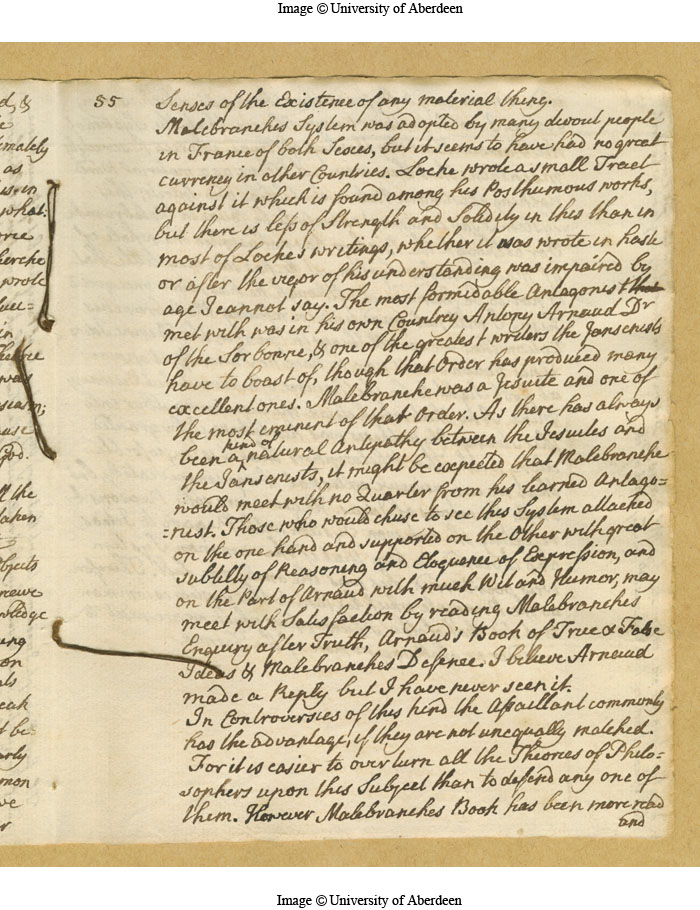 Image © University of Aberdeen
55
Senses of the Existence of any material thing.
Malebranches System was adopted by many devout people
in France of both Sexes, but it seems to have had no great
currency in other Countries. Locke wrote a small Tract
against it which is found among his Posthumous works,
but there is less of Strength and Solidity in this than in
most of Lockes writings, whether it was wrote in haste
or after the vigor of his understanding was impaired by
age I cannot say. The most formidable Antagonist that
met with was in his own Countrey Antony Arnaud Dr
of the Sorbonne, & one of the greatest writers the Jansenists
have to boast of, though that Order has produced many
excellent ones. Malebranche was a Jesuite and one of
the most eminent of that Order. As there has always
been a kind of natural Antipathy between the Jesuites and
the Jansenists, it might be expected that Malebranche
would meet with no Quarter from his learned Antago=
=nist. Those who would chuse to see this System attacked
on the one hand and supported on the Other with great
subtilty of Reasoning and Eloquence of Expression, and
on the Part of Arnaud with much Wit and Humor, may
meet with Satisfaction by reading Malebranches
Enquiry after Truth, Arnaud's Book of True & False
Ideas & Malebranches Defense. I believe Arnaud
made a Reply but I have never seen it.
In Controversies of this kind the Assaillant commonly
has the advantage, if they are not unequally matched.
For it is easier to overturn all the Theories of Philo=
sophers upon this Subject than to defend any one of
them. However Malebranches Book has been more read
and
Image © University of Aberdeen